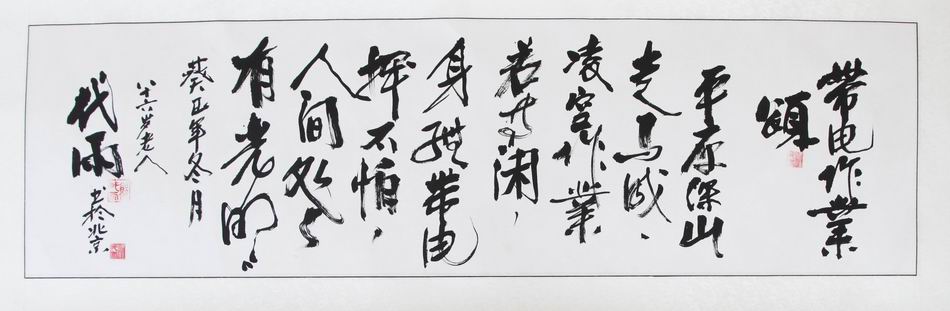 带电作業
頌
平原深山
走马
凌空作業
若等闲，
身 带电
挥不怕，
人间处处
有光明。
年冬月
八十六岁老人
代雨
书於北京